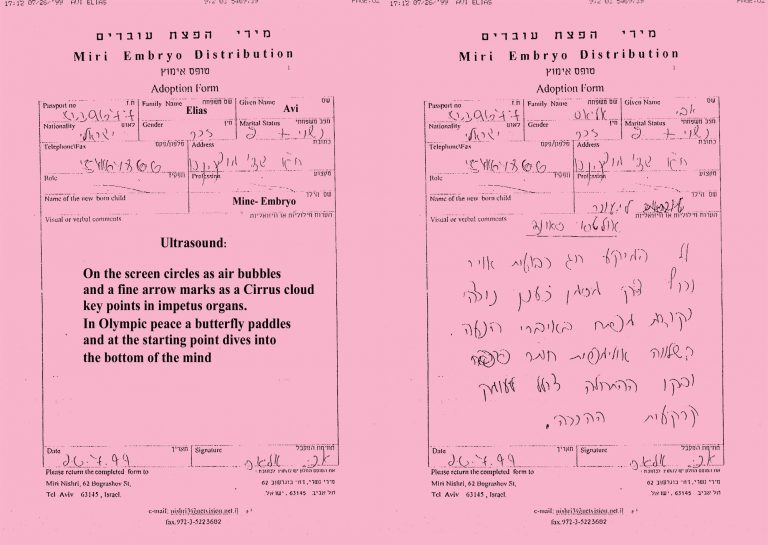 17:12 07/26/'99 AVI ELIAS
מירי הפצת עוברים
Miri Embryo Distribution
טופס אימוץ
Adoption Form
Passport no ת.ז
Family Name שם משפחה
Elias
Given Name שם
Avi
Nationality לאום
ישראלי
Gender מין
זכר
Marital Status מצב משפחתי
נשוי + 2
Telephone\Fax טלפון/פקס
Address כתובת
Role תפקיד
Profession מקצוע
Name of the new born child שם הילד
Mine- Embryo
Visual or verbal comments הערות מילוליות או חיזואליות
Ultrasound:
On the screen circles as air bubbles
and a fine arrow marks as a Cirrus cloud
key points in impetus organs.
In Olympic peace a butterfly paddles
and at the starting point dives into
the bottom of the mind
Date תאריך
26.7.99
Signature חתימת המקבל
Please return the completed form to
Miri Nishri, 62 Bograshov St,
Tel Aviv 63145, Israel.
מירי נשרי, רח' בוגרשוב 62
תל אביב 63145, ישראל
e-mail: nishri3@netvision.net.il
fax.972-3-5223682
17:12 07/26/'99 AVI ELIAS
מירי הפצת עוברים
Miri Embryo Distribution
טופס אימוץ
Adoption Form
Passport no ת.ז
Family Name שם משפחה
אליאס
Given Name שם
אבי
Nationality לאום
ישראלי
Gender מין
זכר
Marital Status מצב משפחתי
נשוי + 2
Telephone\Fax טלפון/פקס
Address כתובת
Role תפקיד
Profession מקצוע
Name of the new born child שם הילד
Visual or verbal comments הערות מילוליות או חיזואליות
אולטרא סאונד
על המרקע חג בועות אויר
וחץ דק מסמן כענן נוצה
נקודות מפתח באיברי הנעה.
בשלווה אולימפית חותר פרפר
ובקו ההתחלה צולל לעומק
קרקעית ההכרה.
Date תאריך
26.7.99
Signature חתימת המקבל
Please return the completed form to
Miri Nishri, 62 Bograshov St,
Tel Aviv 63145, Israel.
מירי נשרי, רח' בוגרשוב 62
תל אביב 63145, ישראל
e-mail: nishri3@netvision.net.il
fax.972-3-5223682